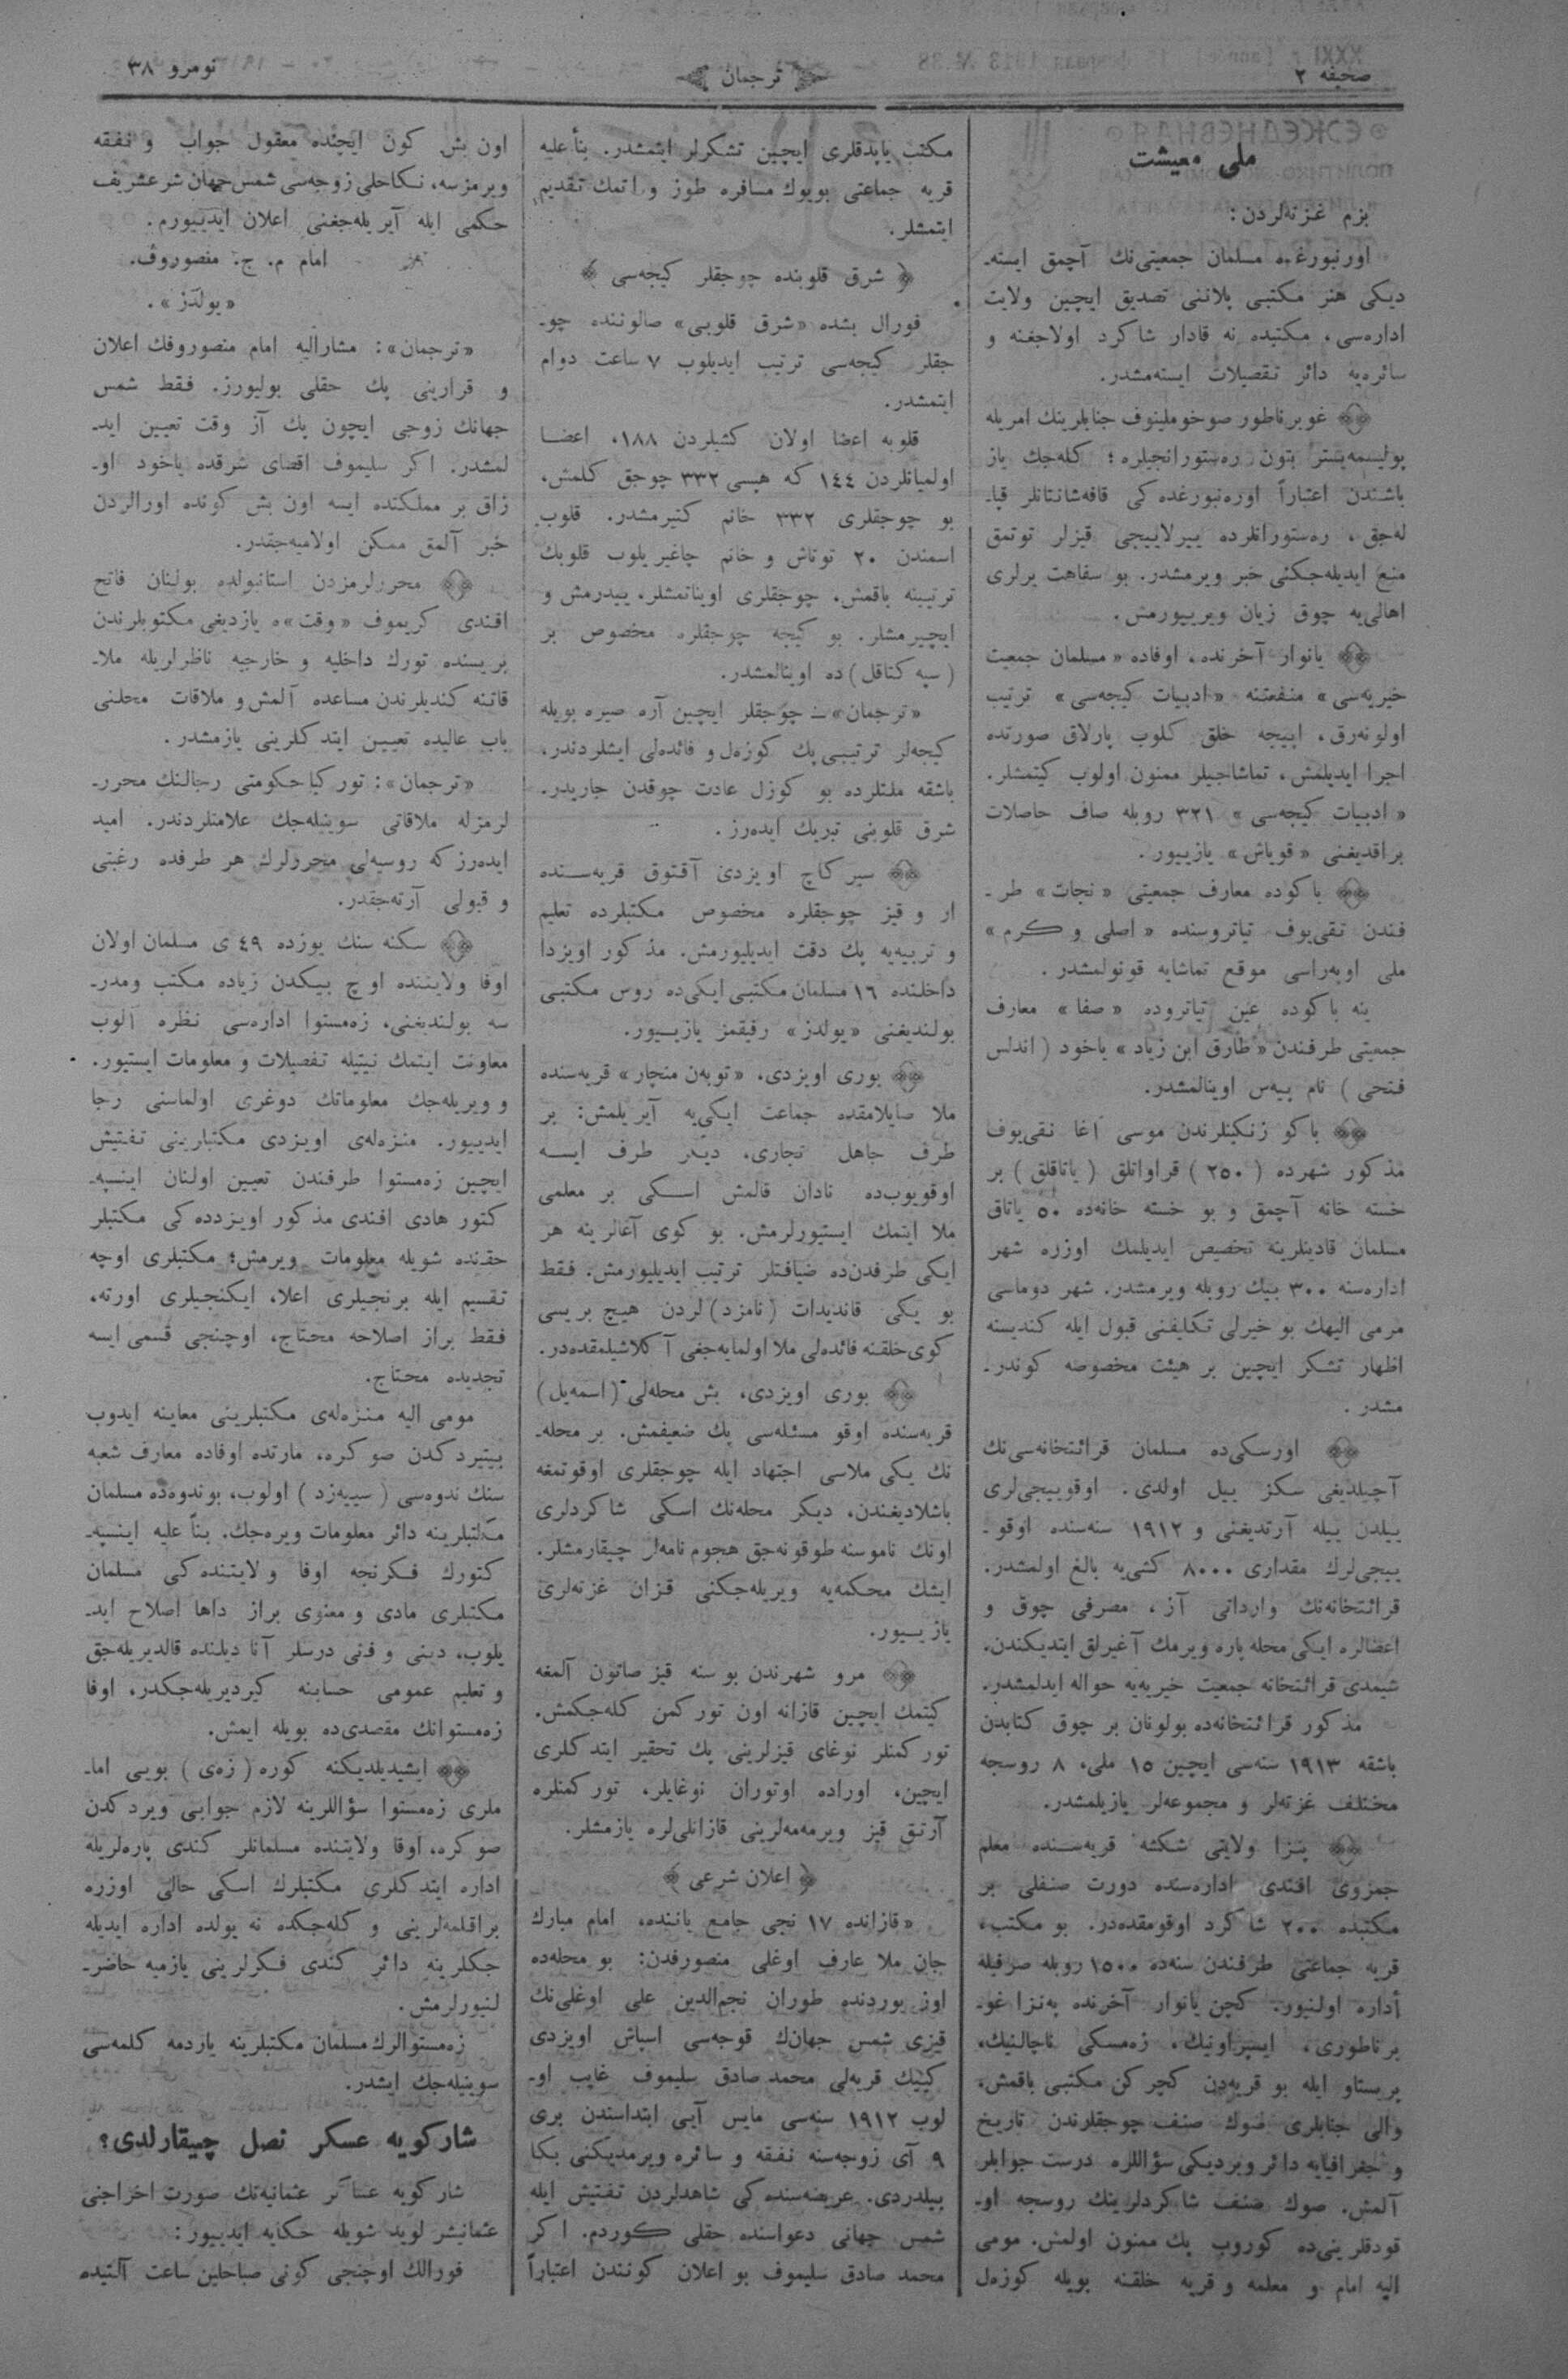 صحیفه ٢
ترجمان
نومرو ٣٨
ملی معیشت
بزم غزته‌لردن:
اورنبورغده مسلمان جمعیتی‌نك آچمق ایسته‌ـ
دیکی هنر مکتبی پلاننی تصدیق ایچین ولایت
اداره‌سی، مکتبده نه قادار شاکرد اولاجغنه و
سائره‌یه دائر تفصیلات ایسته‌مشدر.
غوبرناطور صوخوملینوف جنابلرینك امریله
پولیسمه‌یستر بتون ره‌ستورانجیلره؛ کله‌جك یاز
باشندن اعتباراً اوره‌نبورغده کی قافه‌شانتانلر قپاـ
له‌جق، ره‌ستورانلرده ییرلاییجی قیزلر توتمق
منع ایدیله‌جکنی خبر ویرمشدر. بو سفاهت یرلری
اهالی‌یه چوق زیان ویرییورمش.
یانوار آخرنده، اوفاده «مسلمان جمعیت
خیریه‌سی» منفعتنه «ادبیات کیجه‌سی» ترتیب
اولونه‌رق، اییجه خلق کلوب پارلاق صورتده
اجرا ایدیلمش، تماشاجیلر ممنون اولوب کیتمشلر.
«ادبیات کیجه‌سی» ٣٢١ روبله صاف حاصلات
براقدیغنی «قویاش» یازییور.
باکوده معارف جمعیتی «نجات» طرـ
فندن تقی‌یوف تیاتروسنده «اصلی و کرم»
ملی اوپه‌راسی موقع تماشایه قونولمشدر.
ینه باکوده عین تیاتروده «صفا» معارف
جمعیتی طرفندن «طارق ابن زیاد» یاخود (اندلس
فتحی) نام پیه‌س اوینالمشدر.
باکو زنکینلرندن موسی آغا نقی‌یوف
مذکور شهرده (٢٥٠) قراواتلق (یاتاقلق) بر
خسته خانه آچمق و بو خسته خانه‌ده ٥٠ یاتاق
مسلمان قادینلرینه تخصیص ایدیلمك اوزره شهر
اداره‌سنه ٣٠٠ بیك روبله ویرمشدر. شهر دوماسی
مرمی الیهك بو خیرلی تکلیفنی قبول ایله کندیسنه
اظهار تشکر ایچین بر هیئت مخصوصه کوندرـ
مشدر.
اورسکی‌ده مسلمان قرائتخانه‌سی‌نك
آچیلدیغی سکز ییل اولدی. اوقوییجی‌لری
ییلدن ییله آرتدیغنی و ١٩١٢ سنه‌سنده اوقوـ
ییجی‌لرك مقداری ٨٠٠٠ کشی‌یه بالغ اولمشدر.
قرائتخانه‌نك وارداتی آز، مصرفی چوق و
اعضالره ایکی محله پاره ویرمك آغیرلق ایتدیکندن،
شیمدی قرائتخانه جمعیت خیریه‌یه حواله ایدلمشدر.
مذکور قرائتخانه‌ده بولونان بر چوق کتابدن
باشقه ١٩١٣ سنه‌سی ایچین ١٥ ملی، ٨ روسجه
مختلف غزته‌لر و مجموعه‌لر یازیلمشدر.
پنزا ولایتی شکشه قریه‌سنده معلم
حمزوی افندی اداره‌سنده دورت صنفلی بر
مکتبده ٢٠٠ شاکرد اوقومقده‌در. بو مکتب،
قریه جماعتی طرفندن سنه‌ده ١٥٠٠ روبله صرفیله
أداره اولنیور. کچن یانوار آخرنده په‌نزا غوـ
برناطوری، ایسپراونیك، زه‌مسکی ناچالنیك،
پریستاو ایله بو قریه‌دن کچرکن مکتبی باقمش،
والی جنابلری صوك صنف چوجقلرندن تاریخ
و جغرافیایه دائر ویردیکی سؤاللره درست جوابلر
آلمش. صوك صنف شاکردلرینك روسجه اوـ
قودقلرینی‌ده کوروب پك ممنون اولمش. مومی
الیه امام و معلمه و قریه خلقنه بویله کوزه‌ل
مکتب یاپدقلری ایچین تشکرلر ایتمشدر. بنأعلیه
قریه جماعتی بویوك مسافره طوز و اتمك تقدیم
ایتمشلر.
﴿ شرق قلوبنده چوجقلر کیجه‌سی ﴾
فورال بشده «شرق قلوبی» صالوننده چوـ
جقلر کیجه‌سی ترتیب ایدیلوب ٧ ساعت دوام
ایتمشدر.
قلوبه اعضا اولان کشیلردن ١٨٨، اعضا
اولمیانلردن ١٤٤ که هپسی ٣٣٢ چوجق کلمش،
بو چوجقلری ٣٣٢ خانم کتیرمشدر. قلوب
اسمندن ٢٠ توتاش و خانم چاغیریلوب قلوبك
ترتیبنه باقمش، چوجقلری اویناتمشلر، ییدرمش و
ایچیرمشلر. بو کیجه چوجقلره مخصوص بر
(سپه‌کتاقل)ده اوینالمشدر.
«ترجمان» ــ چوجقلر ایچین آره صیره بویله
کیجه‌لر ترتیبی پك کوزه‌ل و فائده‌لی ایشلردندر،
باشقه ملتلرده بو کوزل عادت چوقدن جاریدر.
شرق قلوبنی تبریك ایده‌رز.
سیرکاچ اویزدی آقتوق قریه‌سنده
ار و قیز چوجقلره مخصوص مکتبلرده تعلیم
و تربیه‌یه پك دقت ایدیلیورمش. مذکور اویزدا
داخلنده ١٦ مسلمان مکتبی ایکی‌ده روس مکتبی
بولندیغنی «یولدز» رفیقمز یازییور.
بوری اویزدی، «توبه‌ن منچار» قریه‌سنده
ملا صایلامقده جماعت ایکی‌یه آیریلمش: بر
طرف جاهل تجاری، دیکر طرف ایسه
اوقویوب‌ده نادان قالمش اسکی بر معلمی
ملا ایتمك ایستیورلرمش. بو کوی آغالرینه هر
ایکی طرفدن‌ده ضیافتلر ترتیب ایدیلیورمش. فقط
بو یکی قاندیدات (نامزد)لردن هیچ بریسی
کوی خلقنه فائده‌لی ملا اولمایه‌جغی آکلاشیلمقده‌در.
بوری اویزدی، بش محله‌لی (اسمه‌یل)
قریه‌سنده اوقو مسئله‌سی پك ضعیفمش. بر محله‌ـ
نك یکی ملاسی اجتهاد ایله چوجقلری اوقوتمغه
باشلادیغندن، دیکر محله‌نك اسکی شاکردلری
اونك ناموسنه طوقونه‌جق هجوم نامه‌لر چیقارمشلر.
ایشك محکمه‌یه ویریله‌جکنی قزان غزته‌لری
یازییور.
مرو شهرندن بو سنه قیز صاتون آلمغه
کیتمك ایچین قازانه اون تورکمن کله‌جکمش.
تورکمنلر نوغای قیزلرینی پك تحقیر ایتدکلری
ایچین، اوراده اوتوران نوغایلر، تورکمنلره
آرتق قیز ویرمه‌مه‌لرینی قازانلی‌لره یازمشلر.
﴿ اعلان شرعی ﴾
«قازانده ١٧ نجی جامع یاننده، امام مبارك
جان ملا عارف اوغلی منصورفدن: بو محله‌ده
اوز یوردنده طوران نجم‌الدین علی اوغلی‌نك
قیزی شمس جهان‌ك قوجه‌سی اسپاش اویزدی
کینیك قریه‌لی محمد صادق سلیموف غایب اوـ
لوب ١٩١٢ سنه‌سی مایس آیی ابتداسندن بری
٩ آی زوجه‌سنه نفقه و سائره ویرمدیکنی بکا
بیلدردی. عریضه‌سنده کی شاهدلردن تفتیش ایله
شمس جهانی دعواسنده حقلی کوردم. اکر
محمد صادق سلیموف بو اعلان کونندن اعتباراً
اون بش کون ایچنده معقول جواب و نفقه
ویرمزسه، نکاحلی زوجه‌سی شمس جهان شرع شریف
حکمی ایله آیریله‌جغنی اعلان ایدییورم.
امام م. ج. منصوروف.
«یولدز».
«ترجمان»: مشارالیه امام منصوروفك اعلان
و قرارینی پك حقلی بولیورز. فقط شمس
جهانك زوجی ایچون پك آز وقت تعیین ایدـ
لمشدر. اکر سلیموف اقصای شرقده یاخود اوـ
زاق بر مملکتده ایسه اون بش کونده اورالردن
خبر آلمق ممکن اولامیه‌جقدر.
محررلرمزدن استانبولده بولنان فاتح
افندی کریموف «وقت»ه یازدیغی مکتوبلرندن
بریسنده تورك داخلیه و خارجیه ناظرلریله ملاـ
قاتنه کندیلرندن مساعده آلمش و ملاقات محلنی
باب عالیده تعیین ایتدکلرینی یازمشدر.
«ترجمان»: تورکیا حکومتی رجالنك محررـ
لرمزله ملاقاتی سوینیله‌جك علامتلردندر. امید
ایده‌رز که روسیه‌لی محررلرك هر طرفده رغبتی
و قبولی آرته‌جقدر.
سکنه سنك یوزده ٤٩ ی مسلمان اولان
اوفا ولایتنده اوچ بیکدن زیاده مکتب ومدرـ
سه بولندیغنی، زه‌مستوا اداره‌سی نظره آلوب
معاونت ایتمك نیتیله تفصیلات و معلومات ایستیور.
و ویریله‌جك معلوماتك دوغری اولماسنی رجا
ایدییور. منزه‌له‌ی اویزدی مکتبلرینی تفتیش
ایچین زه‌مستوا طرفندن تعیین اولنان اینسپه‌ـ
کتور هادی افندی مذکور اویزدده کی مکتبلر
حقنده شویله معلومات ویرمش؛ مکتبلری اوچه
تقسیم ایله برنجیلری اعلا، ایکنجیلری اورته،
فقط براز اصلاحه محتاج، اوچنجی قسمی ایسه
تجدیده محتاج.
مومی الیه منزه‌له‌ی مکتبلرینی معاینه ایدوب
بیتیردکدن صوکره، مارتده اوفاده معارف شعبه
سنك ندوه‌سی (سییه‌زد) اولوب، بوندوه‌ده مسلمان
مکتبلرینه دائر معلومات ویره‌جك. بنأ علیه اینسپه‌ـ
کتورك فکرنجه اوفا ولایتنده کی مسلمان
مکتبلری مادی و معنوی براز داها اصلاح ایدـ
یلوب، دینی و فنی درسلر آنا دیلنده قالدیریله‌جق
و تعلیم عمومی حسابنه کیردیریله‌جکدر، اوفا
زه‌مستوانك مقصدی‌ده بویله ایمش.
ایشیدیلدیکنه کوره (زه‌ی) بویی اماـ
ملری زه‌مستوا سؤاللرینه لازم جوابی ویردکدن
صوکره، اوفا ولایتنده مسلمانلر کندی پاره‌لریله
اداره ایتدکلری مکتبلرك اسکی حالی اوزره
براقلمه‌لرینی و کله‌جکده نه یولده اداره ایدیله
جکلرینه دائر کندی فکرلرینی یازمیه حاضرـ
لنیورلرمش.
زه‌مستوالرك مسلمان مکتبلرینه یاردمه کلمه‌سی
سوینیله‌جك ایشدر.
شارکویه عسکر نصل چیقارلدی؟
شارکویه عساکر عثمانیه‌نك صورت اخراجنی
عثمانیشر لوید شویله حکایه ایدییور:
فورالك اوچنجی کونی صباحلین ساعت آلتیده